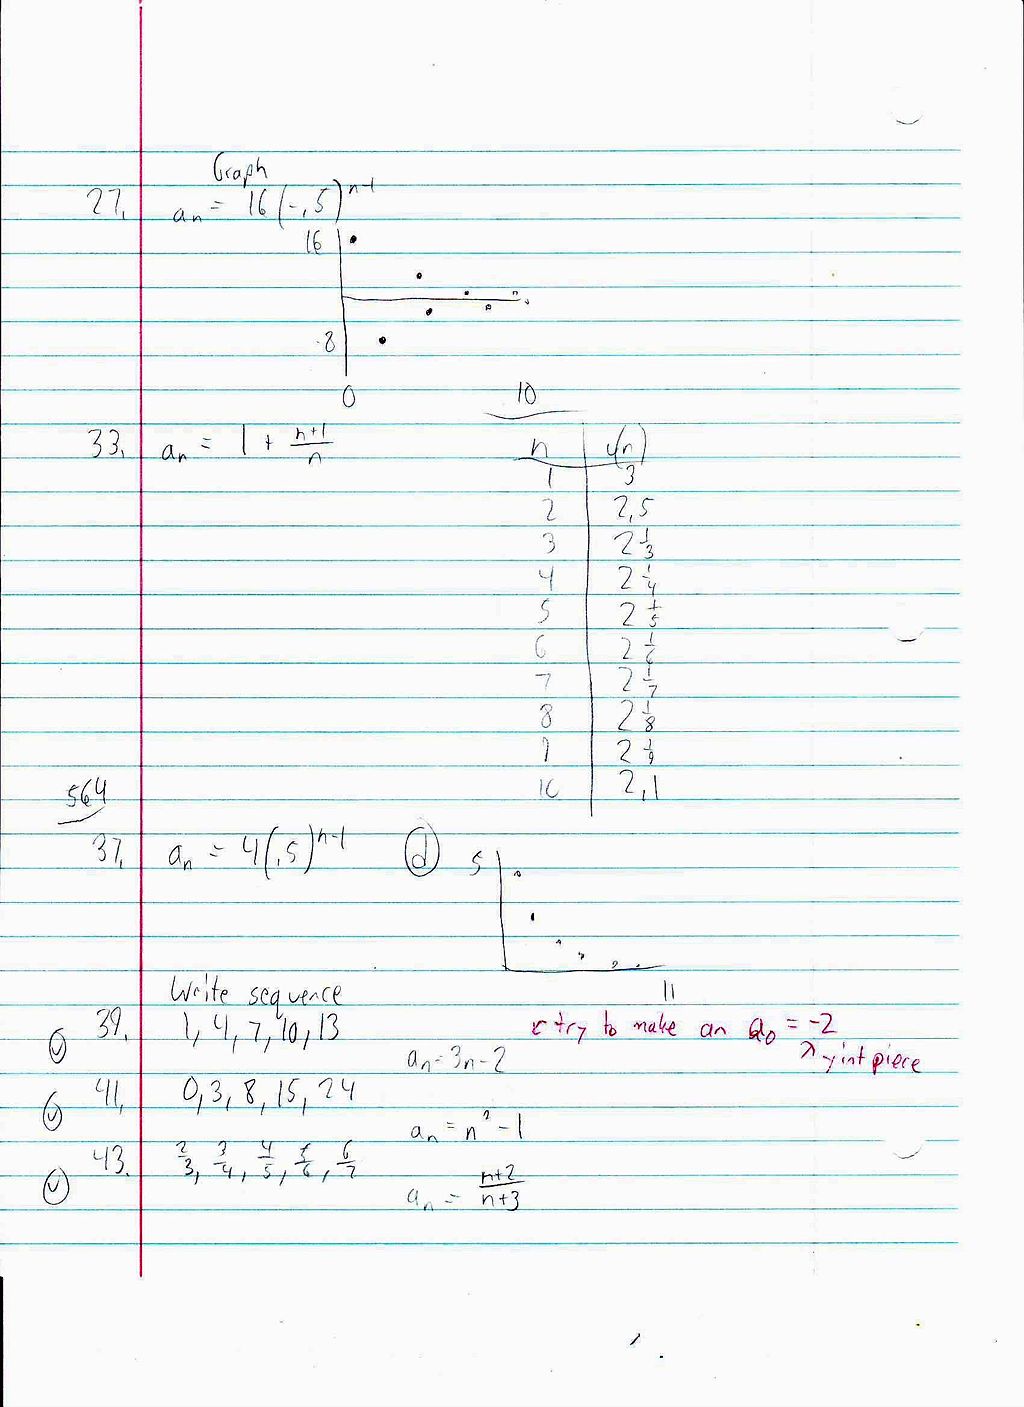 Graph
27. aₙ = 16(-.5)ⁿ⁻¹
16
-8
0 10
33. aₙ = 1 + (n+1)/n
n u(n)
1 3
2 2.5
3 2 1/3
4 2 1/4
5 2 1/5
6 2 1/6
7 2 1/7
8 2 1/8
9 2 1/9
10 2.1
564
37. aₙ = 4(.5)ⁿ⁻¹ d 5
11
Write sequence
39. 1, 4, 7, 10, 13
try to make an a₀ = -2
aₙ = 3n-2
y int piece
41. 0, 3, 8, 15, 24
aₙ = n² - 1
43. 2/3, 3/4, 4/5, 5/6, 6/7
aₙ = (n+2)/(n+3)